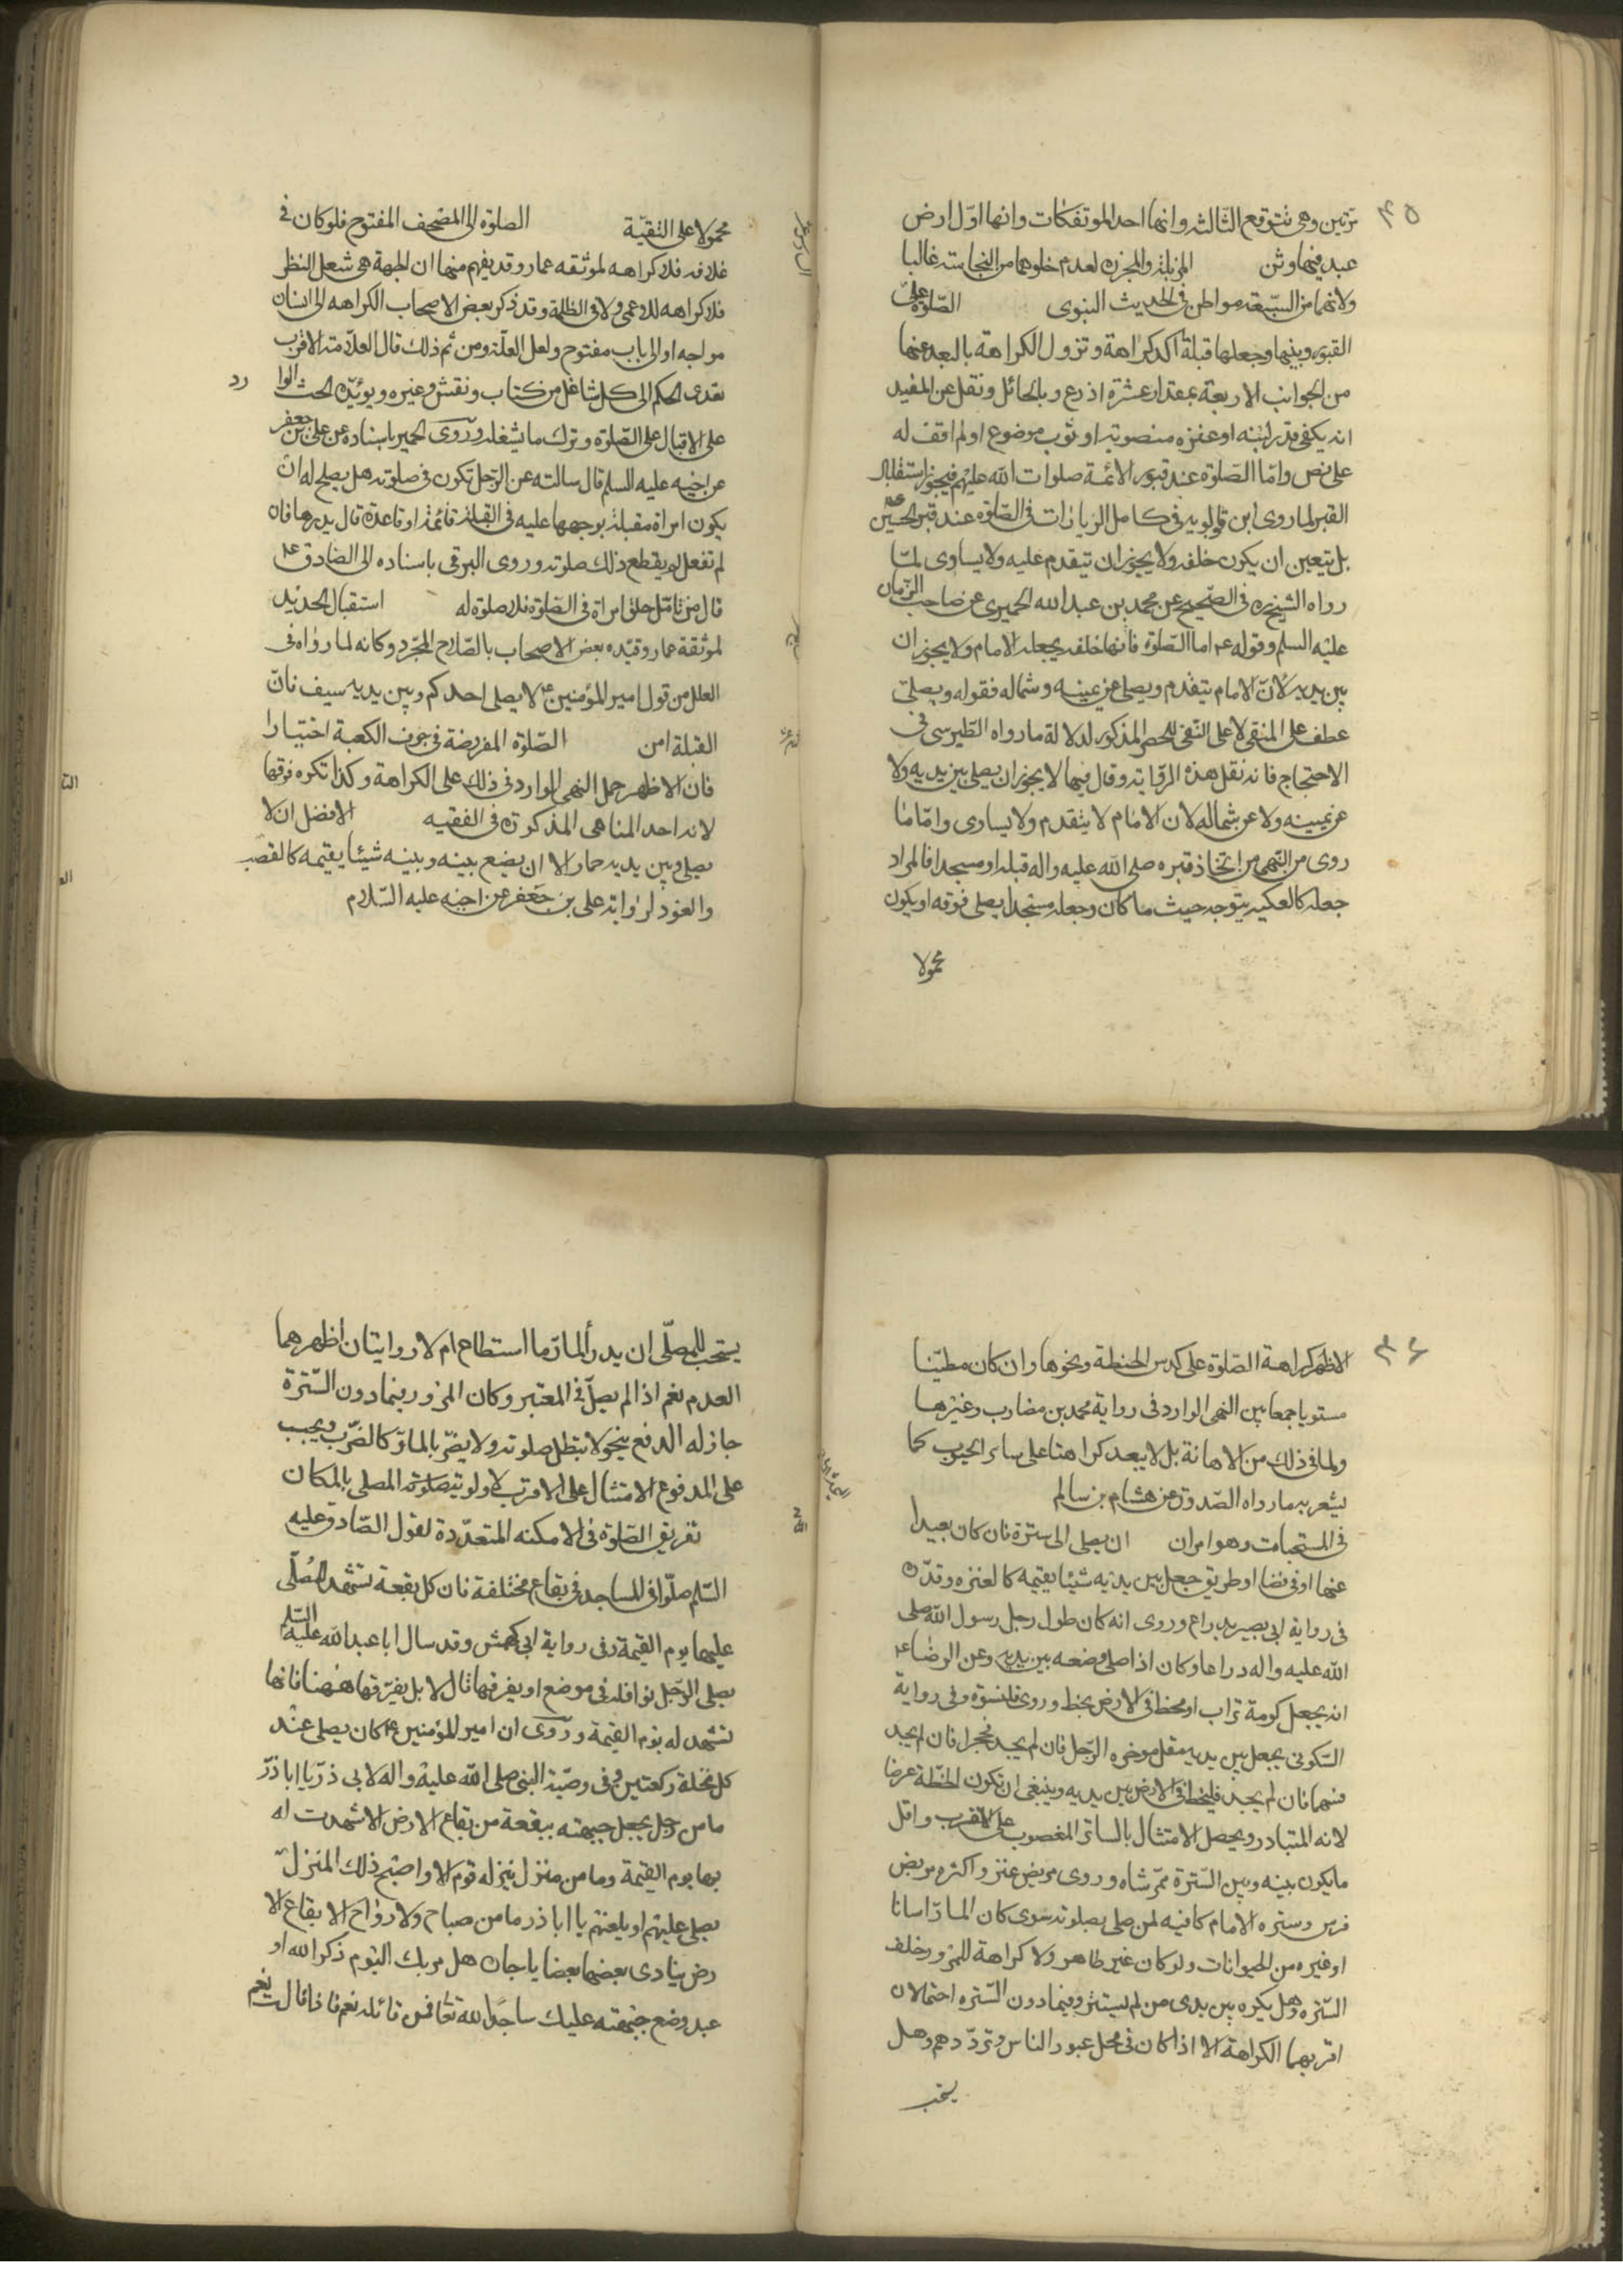 ٤٥
مرتين وهى تتوقع الثالثه وانها احد الموتفكات وانها اوّل ارض
عبد فيها وثن المزبلة والمجزرة لعدم خلوهما من النجاسته غالبا
ولانهما من السبعة مواطن فى الحديث النبوى الصّلوة على
القبور وبينها وجعلها قبلة آكد كراهة وتزول الكراهة بالبعد عنها
من الجوانب الاربعة بمقدار عشرة اذرع وبالحائل ونقل عن المفيد
انه يكفى قدر لبنه او عنزه منصوبة او ثوب موضوع او لم اقف له
على نص وامّا الصّلوة عند قبور الائمة صلوات الله عليهم فيجوز استقبال
القبر لما روى ابن قولويه فى كامل الزيارات فى الصّلوة عند قبر الحسين ع
بل يتعين ان يكون خلفه ولا يجوز ان يتقدم عليه ولا يساوى لما
رواه الشيخ ره فى الصّحيح عن محمد بن عبد الله الحميرى عن صاحب الزّمان
عليه السلم وقوله ع اما الصّلوة فانها خلفه يجعله الامام ولا يجوز ان
بين يديه لانّ الامام يتقدم ويصلى عن يمينه وشماله فقوله ويصلى
عطف على المنفى لا على النفى للحصر المذكور لدلالة ما رواه الطبرسى فى
الاحتجاج فانه نقل هذه الرواية وقال فيها لا يجوز ان يصلى بين يديه ولا
عن يمينه ولا عن شماله لان الامام لا يتقدم ولا يساوى وامّا ما
روى من النهى من اتخاذ قبره صلى الله عليه واله قبلة او مسجدا فالمراد
جعله كالعكبه يتوجه حيث ما كان وجعله مسجدا يصلى فوقه او يكون
محمولا
محمولا على التقيّة الصلوة الى المصحف المفتوح فلو كان فى
غلافه فلا كراهه لموثقه عمار وقد يفهم منها ان الجهة هى شغل النظر
فلا كراهه للاعمى ولا فى الظلمة وقد ذكر بعض الاصحاب الكراهه الى انسان
مواجه او الى باب مفتوح ولعل العلة ومن ثم ذلك قال العلّامة الاقرب
تعدى الحكم الى كل شاغل من كتاب ونقش وغيره ويؤيّده الحث الوا
رد
على الاقبال على الصّلوة وترك ما يشغله وروى الحميرى باسناده عن على بن جعفر
عن اخيه عليه السلم قال سالته عن الرّجل يكون فى صلوته هل يصلح له ان
يكون امراة مقبلة بوجهها عليه فى القبلة قائمة او قاعدة قال يدرها فان
لم تفعل لم يقطع ذلك صلوته وروى البرقى باسناده الى الصّادق ع
قال من تامّل خلق امراة فى الصّلوة فلا صلوة له استقبال الحديد
لموثقة عمار وقيّده بعض الاصحاب بالصّلاح المجرّد وكانه لما رواه فى
العلل من قول امير المؤمنين ع لا يصلى احدكم وبين يديه سيف فانّ
القبلة امن الصّلوة المفريضة فى جوف الكعبة اختيارا
فانّ الاظهر حمل النهى الوارد فى ذلك على الكراهة وكذا تكره فوقها
لانه احد المناهى المذكورة فى الفقيه الافضل ان لا
يصلى وبين يديه حمار الا ان يضع بينه وبينه شيئا يقيمه كالقصب
والعود لرواية على بن جعفر عن اخيه عليه السّلام
٤٦
الاظهر كراهة الصّلوة على كدس الحنطة ونحوها وان كان مطيّنا
مستويا جمعا بين النهى الوارد فى رواية محمد بن مضارب وغيرها
ولما فى ذلك من الاهانة بل لا يبعد كراهتها على سائر الحبوب كما
يشعر به ما رواه الصّدوق عن هشام بن سالم
فى المستحبات وهو امران ان يصلى الى سترة فان كان بعيدا
عنها او فى فضاء او طريق جعل بين يديه شيئا يقيمه كالعنزه وقدّره
فى رواية ابى بصير بدراع وروى انه كان طول رحل رسول الله صلى
الله عليه واله دراعا وكان اذا صلى وضعه بين يديه وعن الرضا ع
انه يجعل كومة تراب او يخط فى الارض بخط وروى قلنسوة وفى رواية
السّكونى يجعل بين يديه مثل موخره الرّحل فان لم يجد فحجرا فان لم يجد
فسهما فان لم يجد فليخط فى الارض بين يديه وينبغى ان تكون الخطة عرضا
لانه المتبادر ويحصل الامتثال بالساتر المغصوب على الاقرب واقل
ما يكون بينه وبين السّترة ممرّ شاه وروى مربض عنز واكثره مربض
فرس وستره الامام كافيه لمن صلى بصلوته سوى كان المارّ انسانا
او غيره من الحيوانات ولو كان غير طاهر ولا كراهة للمرور خلف
السّتره وهل يكره بين يدى من لم يستتر وفيما دون السّتره احتمالان
اقربهما الكراهة الا اذا كان فى محل عبور الناس وتردّدهم وهل
يستحب
يستحب للمصلّى ان يدرأ المارّ ما استطاع ام لا روايتان اظهرهما
العدم نعم اذا لم يصلّ فى المعتبر وكان المرور فيما دون السّترة
جاز له الدفع بنحو لا يبطل صلوته ولا يضرّ بالمارّ كالضّرب ويجب
على المدفوع الامتثال على الاقرب لاولوية صلوة المصلى بالمكان
تفريق الصّلوة فى الامكنه المتعدّدة لقول الصّادق عليه
السّلم صلّوا فى المساجد فى بقاع مختلفة فان كل بقعة تشهد للمُصلّى
عليها يوم القيمة وفى رواية ابى كهمش وقد سال ابا عبد الله عليه السّلم
يصلى الرّجل نوافله فى موضع او يفرقها قال لا بل يفرّقها هٰهنا فانها
تشهد له يوم القيمة وروى ان امير المؤمنين ع كان يصلى عند
كل نخلة ركعتين وفى وصيّة النبى صلى الله عليه واله لابى ذرّ يا ابا ذرّ
ما من رجل يجعل جبهته ببقعة من بقاع الارض الا شهدت له
بها يوم القيمة وما من منزل ينزله قوم الا واصبح ذلك المنزل
يصلى عليهم او يلعنهم يا ابا ذر ما من صباح ولا رواح الا بقاع الا
رض ينادى بعضها بعضا يا جاره هل مر بك اليوم ذكر الله او
عبد وضع جبهته عليك ساجدا لله تعا فمن قائله نعم فاذا قالت نعم